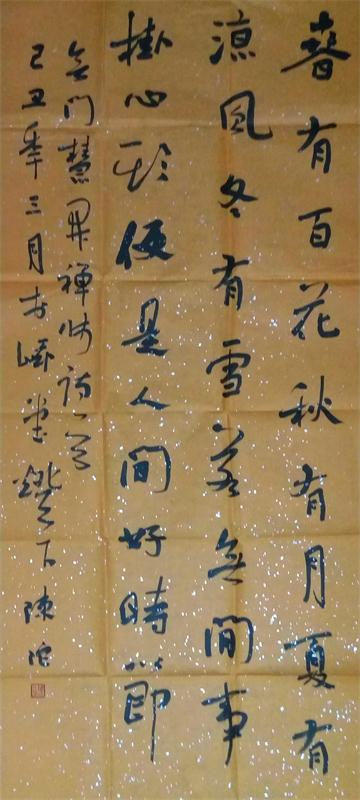 春有百花秋有月夏有
涼風冬有雪若無閒事
掛心頭便是人間好時節
無門慧開禪師詩一首
己丑年三月於堂下陳